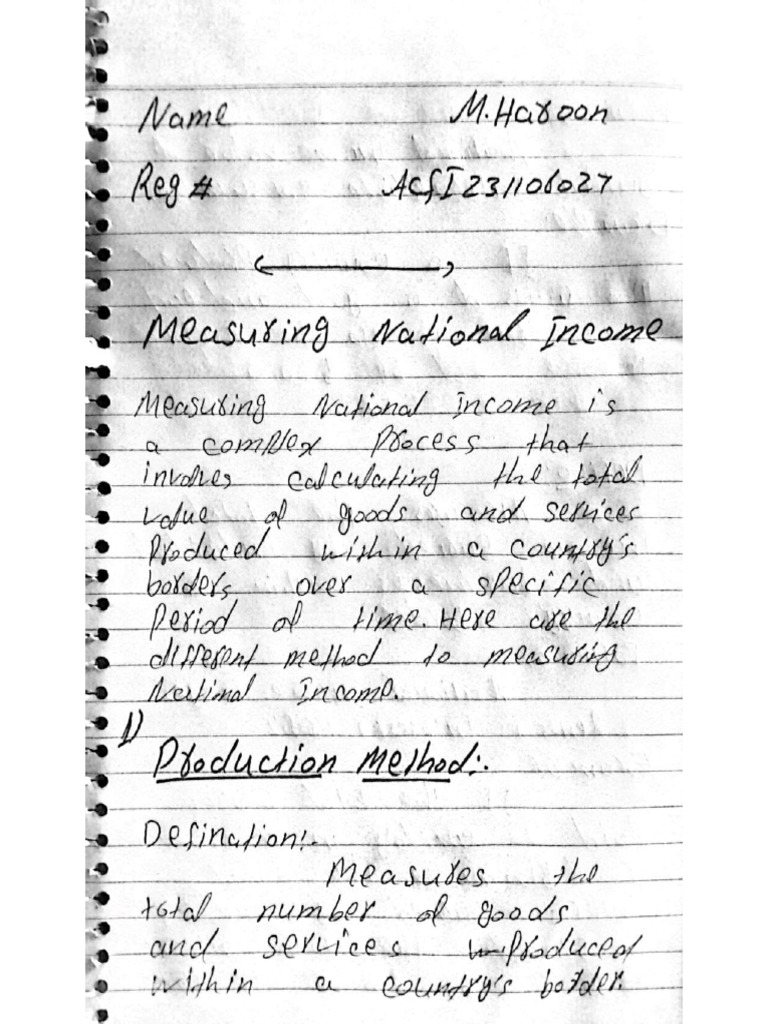 Name M.Haroon
Reg # ACFI231106027
Measuring National Income
Measuring National Income is
a complex process that
involves calculating the total
value of goods and services
Produced within a country's
borders over a specific
Period of time. Here are the
different method to measuring
National Income.
1)
Production Method:-
Defination:-
Measures the
total number of goods
and services Produced
within a country's border.